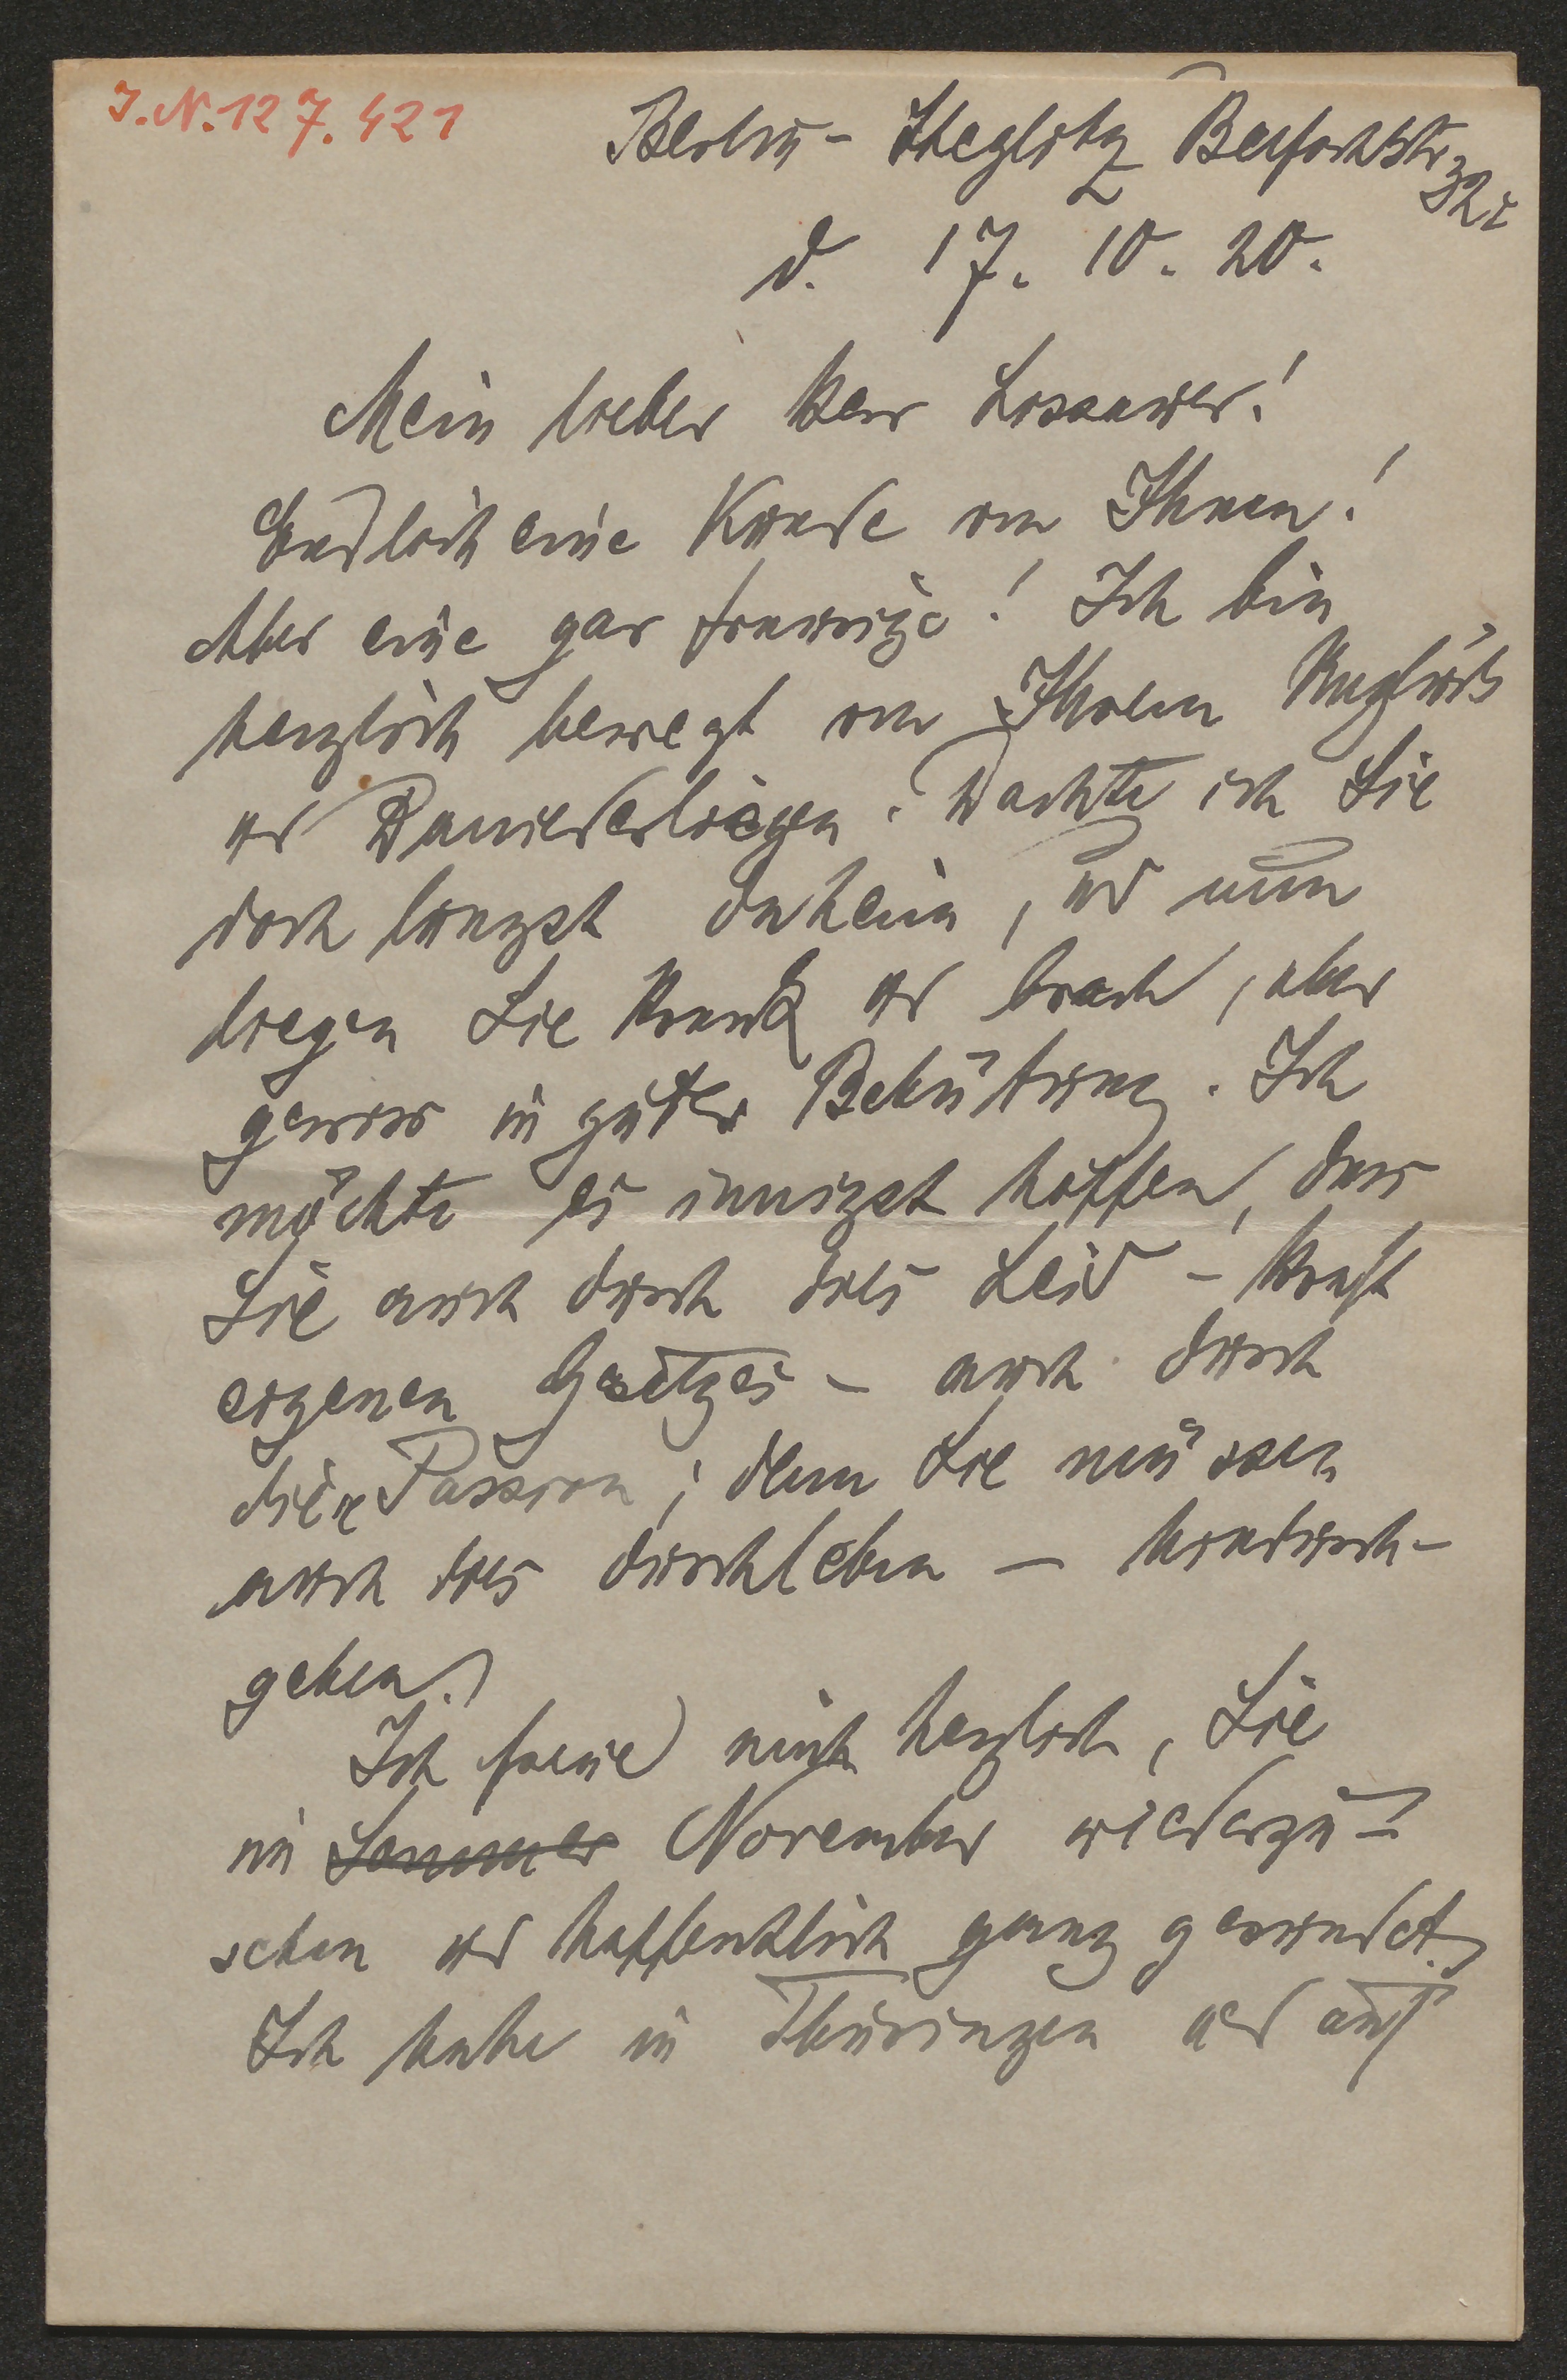 I.N. 127.421
Berlin - Steglitz Belfortstr 32 I
d. 17. 10. 20.
Mein lieber Herr Lissauer!
Endlich eine Kunde von Ihnen!
Aber eine gar traurige! Ich bin
herzlich bewegt von Ihrem Unglück
ud Daniederliegen. Dachte ich Sie
doch längst daheim, ud nun
liegen Sie krank ud brach, aber
gewiss in guter Behütung. Ich
möchte es innigst hoffen, dass
Sie auch durch dies Leid - kraft
eigenen Gesetzes - auch durch
diese Passion; denn Sie müssen
auch dies durchleben - hindurch-
gehen.
Ich freue mich herzlich, Sie
im Sommer November wiederzu-
sehen ud hoffentlich ganz gesundet.
Ich habe in Thüringen ud auf